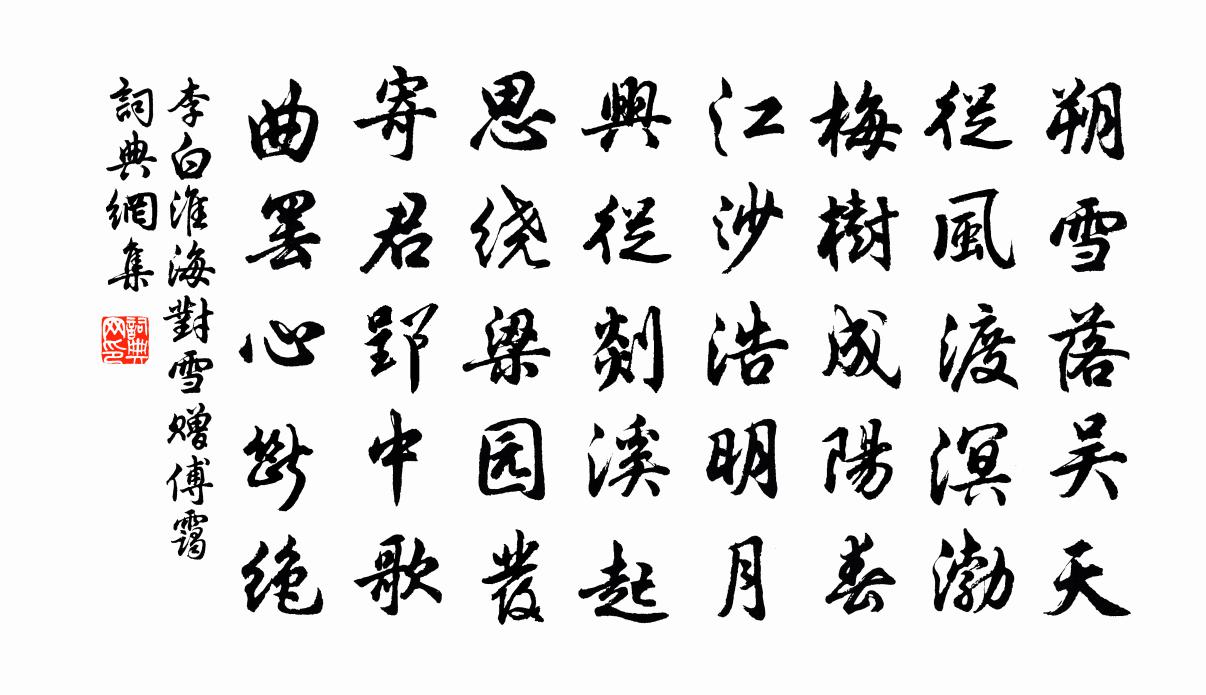 朔雪落吴天
從風渡溟渤
梅樹成陽春
江沙浩明月
興從剡溪起
思绕梁园發
寄君郢中歌
曲罢心斷绝
李白淮海對雪赠傅靄
詞典網集
詞典网印